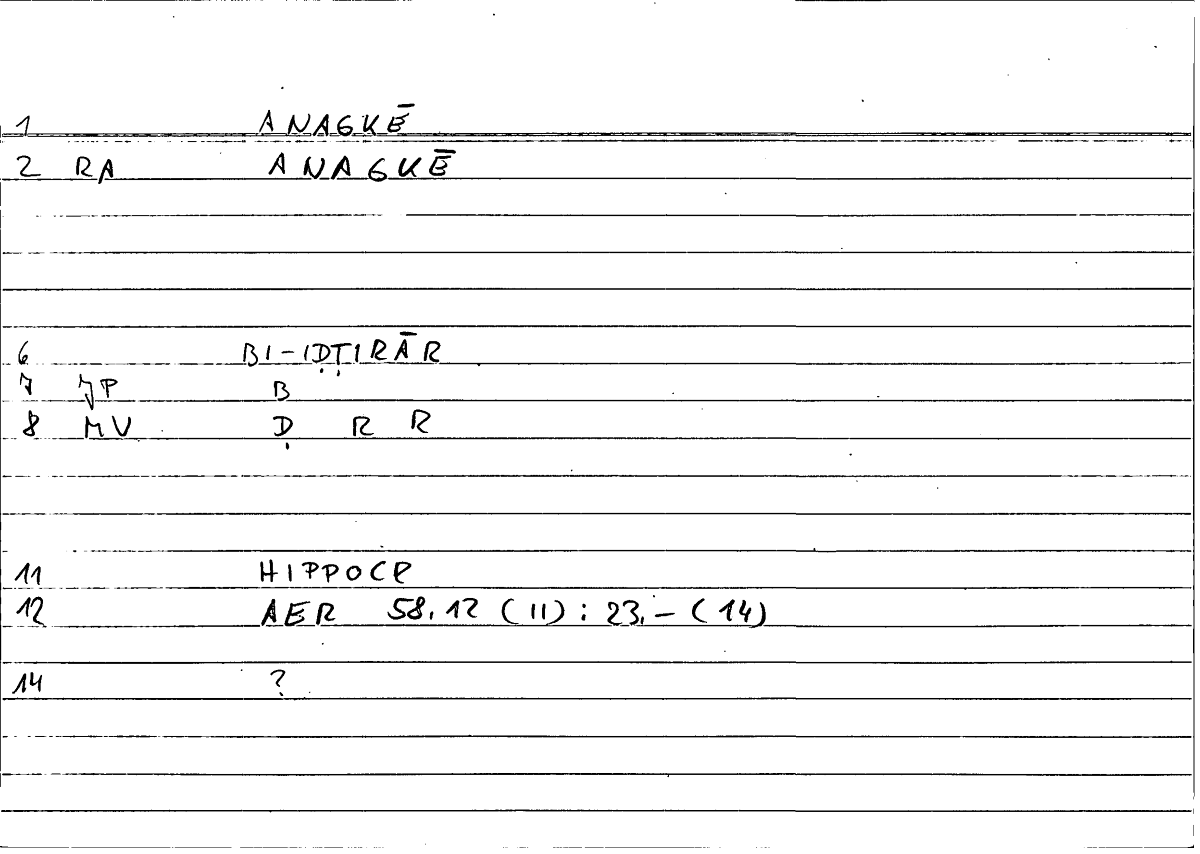 1 ANAGKĒ
2 RA ANAGKĒ
6 BI-IḌṬIRĀR
7 JP B
8 MV Ḍ R R
11 HIPPOCR
12 AER 58.12 (11) : 23.- (14)
14 ?